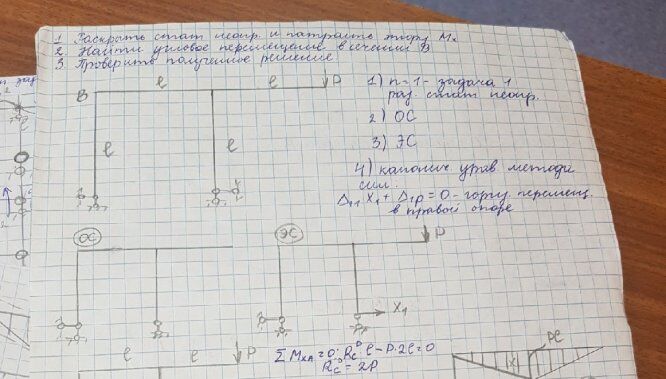 1. Раскрыть стат. неопр. и построить эпюру Mx
2. Найти угловое перемещение в сечении B
3. Проверить полученное решение
B l l P
l l
1) n=1 - задача 1 раз. стат. неопр.
2) ОС
3) ЭС
4) канонич. урав. метода сил.
Δ11 X1 + Δ1P = 0 - гориз. перемещ.
в правой опоре
ОС
ЭС
P
X1
l l P
ΣMxA = 0: RCP l - P·2l = 0
RCP = 2P
Pl